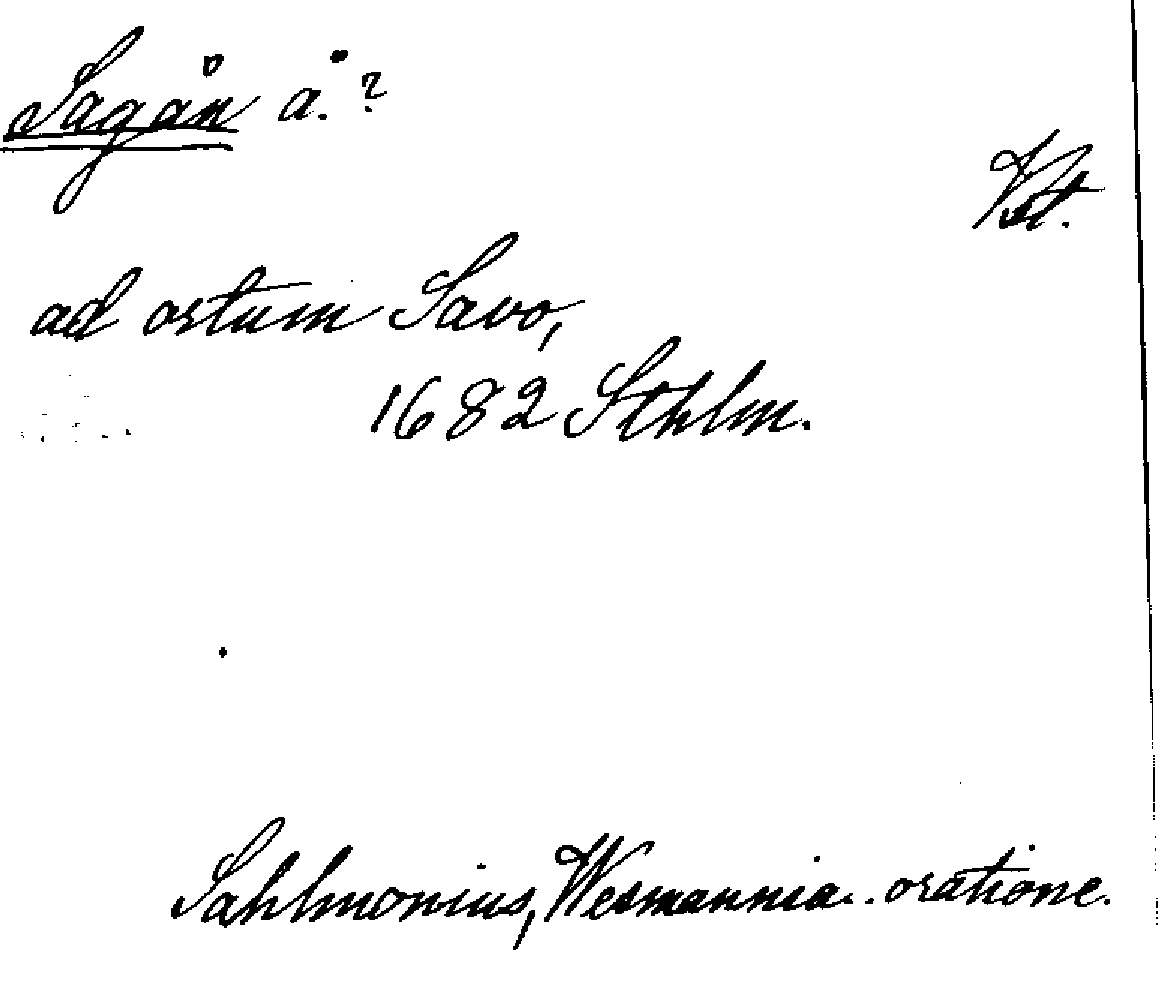 Sagån å.?
Vstl.
ad ostum Savo,
1682 Sthlm.
Sahlmonius, Wesmannia.. oratione.